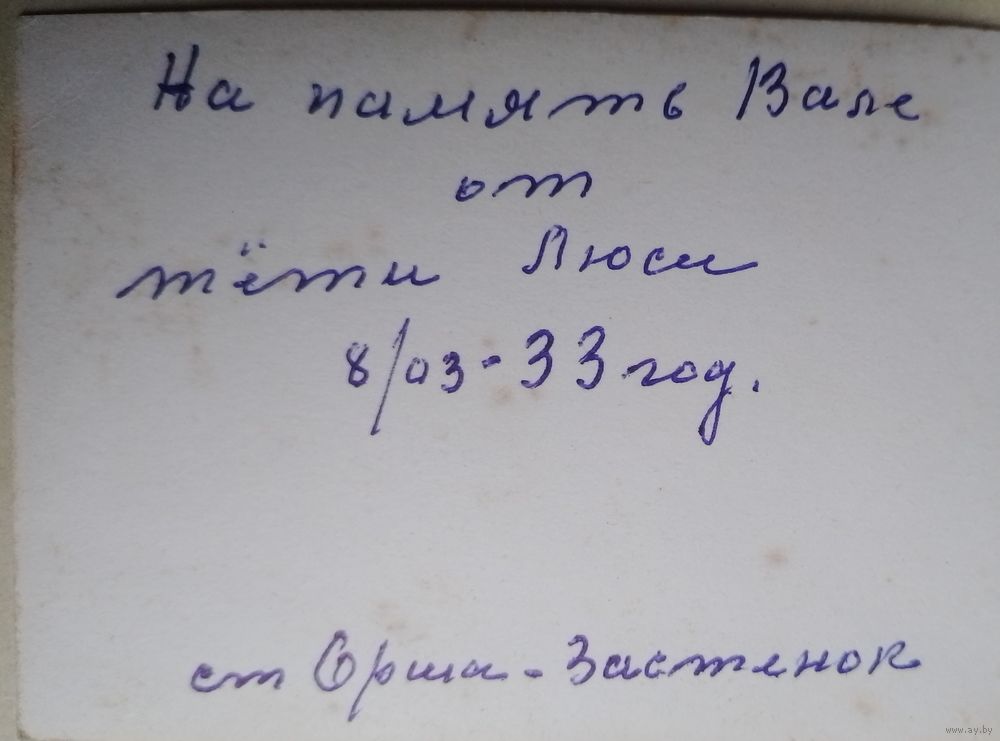 На память Вале
от
тёти Люси
8/03-33 год.
ст Орша-Застенок
www.ay.by